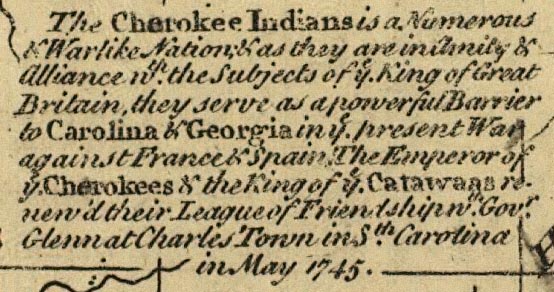 The Cherokee Indians is a Numerous
& Warlike Nation; & as they are in Amity &
Alliance wth. the Subjects of ye. King of Great
Britain, they serve as a powerful Barrier
to Carolina & Georgia in ye. present War
against France & Spain. The Emperor of
ye. Cherokees & the King of ye. Catawaas re-
new'd their League of Friendship wth. Govr.
Glenn at Charles Town in Sth. Carolina
in May 1745.